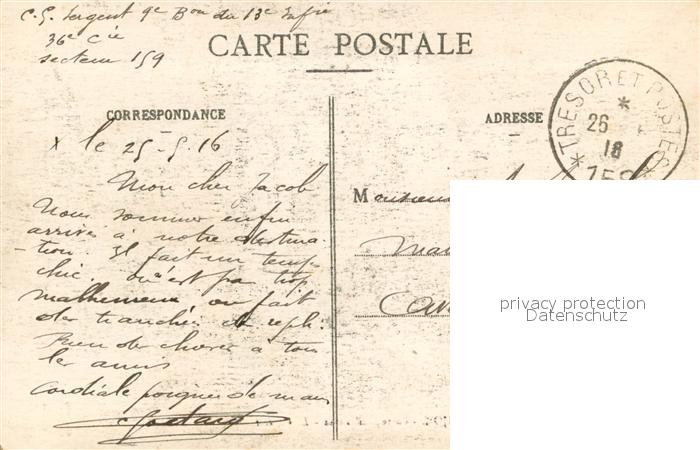 Sergent 9e Bon du 13e
36e Cie
secteur 159
CARTE POSTALE
CORRESPONDANCE
ADRESSE
TRESOR ET POSTES
*
26
16
159
x le 25-5-16
Mon cher Jacob
Nous sommes enfin
arrivés à notre destina
-tion. Il fait un temps
chic. on n'est pas trop
malheureux on fait
des tranchées de repli.
Bien des choses à tous
les amis
Cordiale poignée de main
Monsieur
privacy protection
Datenschutz